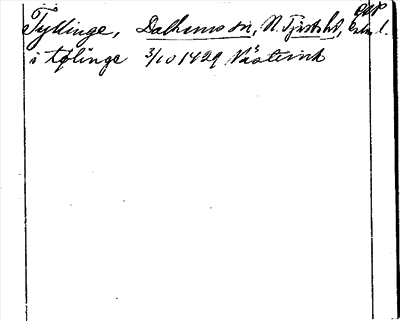 OUP
Tyllinge, Dalhems sn, N. Tjusts hd, Kalm. l.
i tølinge 3/10 1429 Västervik